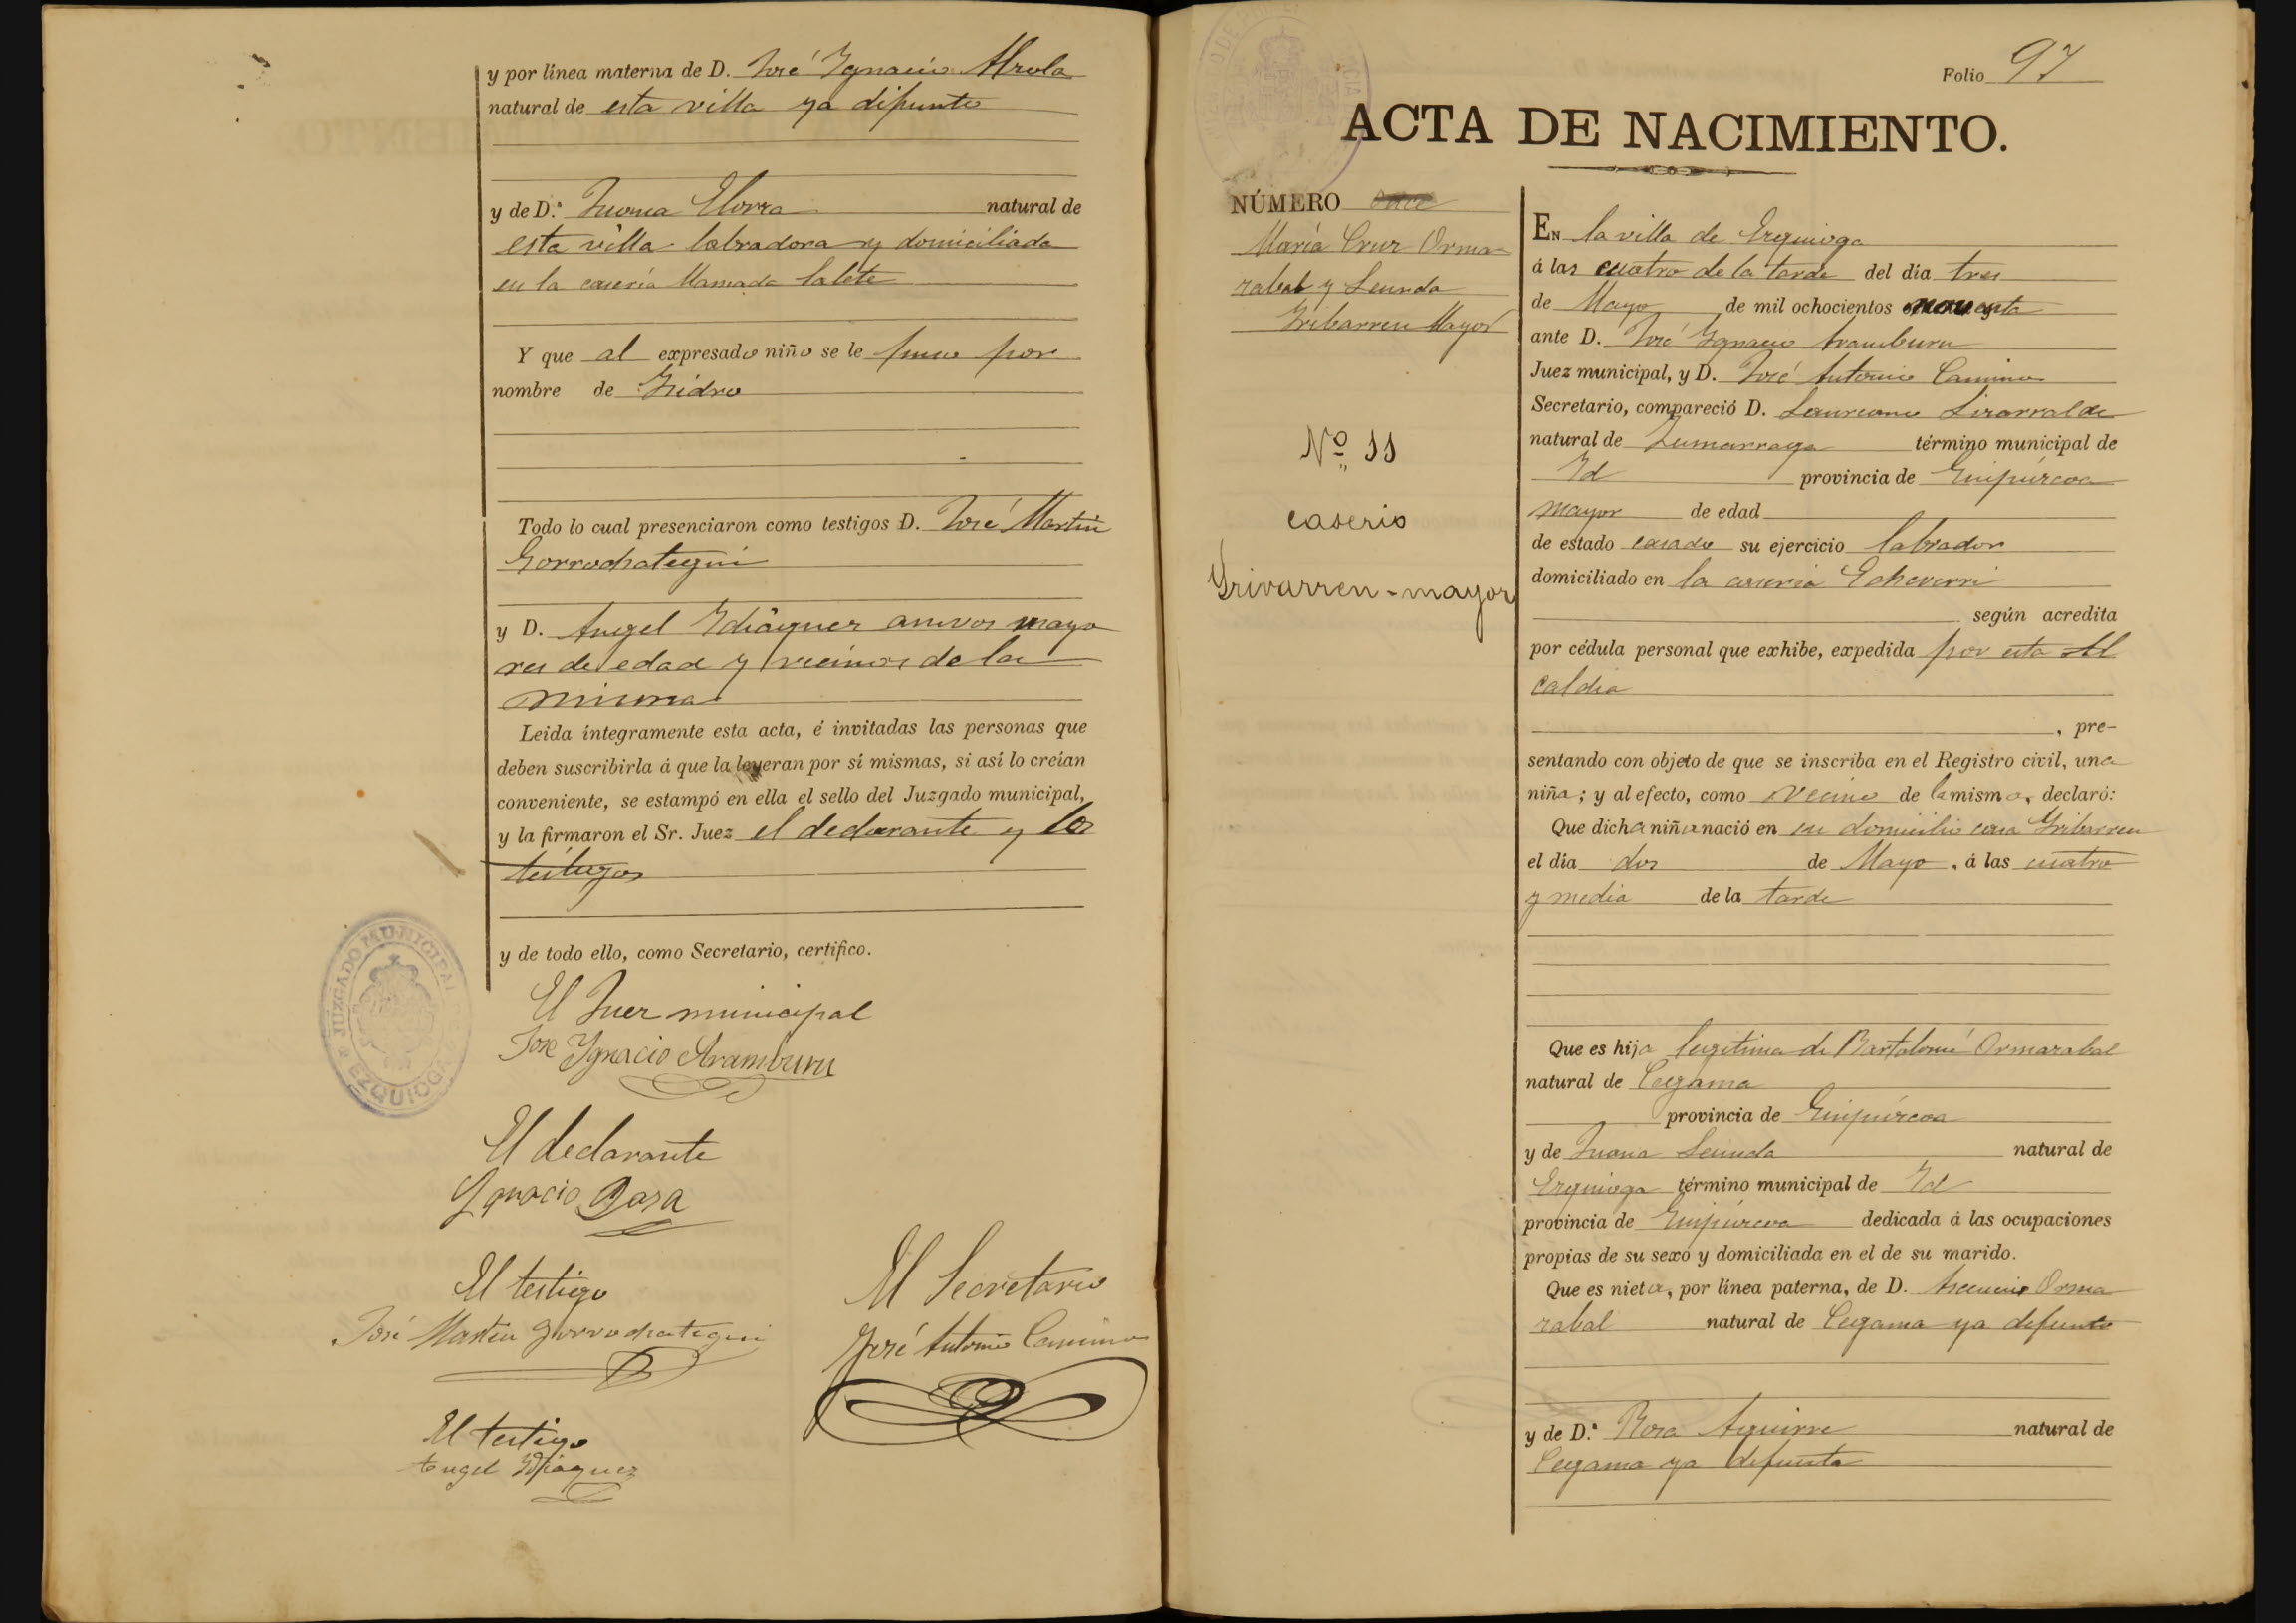 y por línea materna de D. José Ygnacio Alzola
natural de esta villa ya difunto
y de D.ª Juana Elorza natural de
esta villa labradora y domiciliada
en la casería llamada Salete
Y que al expresado niño se le puso por
nombre de Ysidro
Todo lo cual presenciaron como testigos D. José Martin
Gorrochategui
y D. Angel Ydiaquez amvos mayo
res de edad y vecinos de la
misma
Leida íntegramente esta acta, é invitadas las personas que
deben suscribirla á que la leyeran por sí mismas, si así lo creían
conveniente, se estampó en ella el sello del Juzgado municipal,
y la firmaron el Sr. Juez el declarante y los
testigos
y de todo ello, como Secretario, certifico.
El Juez municipal
Jose Ygnacio Aramburu
JUZGADO MUNICIPAL DE EZQUIOGA
El declarante
Ygnacio Dorsa
El testigo
José Martin Gorrochategui
El Secretario
José Antonio Camino
El testigo
Angel Ydiaquez
Folio 97
ACTA DE NACIMIENTO.
NÚMERO once
María Cruz Orma
zabal y Leunda
Yribarren Mayor
Nº 11
caserio
Yrivarren-mayor
EN la villa de Ezquioga
á las cuatro de la tarde del día tres
de Mayo de mil ochocientos noventa
ante D. José Ygnacio Aramburu
Juez municipal, y D. José Antonio Camino
Secretario, compareció D. Laureano Lizarralde
natural de Zumarraga término municipal de
Yd provincia de Guipúzcoa
mayor de edad
de estado casado su ejercicio labrador
domiciliado en la casería Echeverri
según acredita
por cédula personal que exhibe, expedida por esta Al
caldia
, pre-
sentando con objeto de que se inscriba en el Registro civil, una
niña; y al efecto, como vecino de la misma, declaró:
Que dicha niña nació en su domicilio casa Yribarren
el día dos de Mayo, á las cuatro
y media de la tarde
Que es hija legitima de Bartolomé Ormazabal
natural de Cegama
provincia de Guipúzcoa
y de Juana Leunda natural de
Ezquioga término municipal de Yd
provincia de Guipúzcoa dedicada á las ocupaciones
propias de su sexo y domiciliada en el de su marido.
Que es nieta, por línea paterna, de D. Ascencio Orma
zabal natural de Cegama ya difunto
y de D.ª Rosa Aguirre natural de
Cegama ya difunta